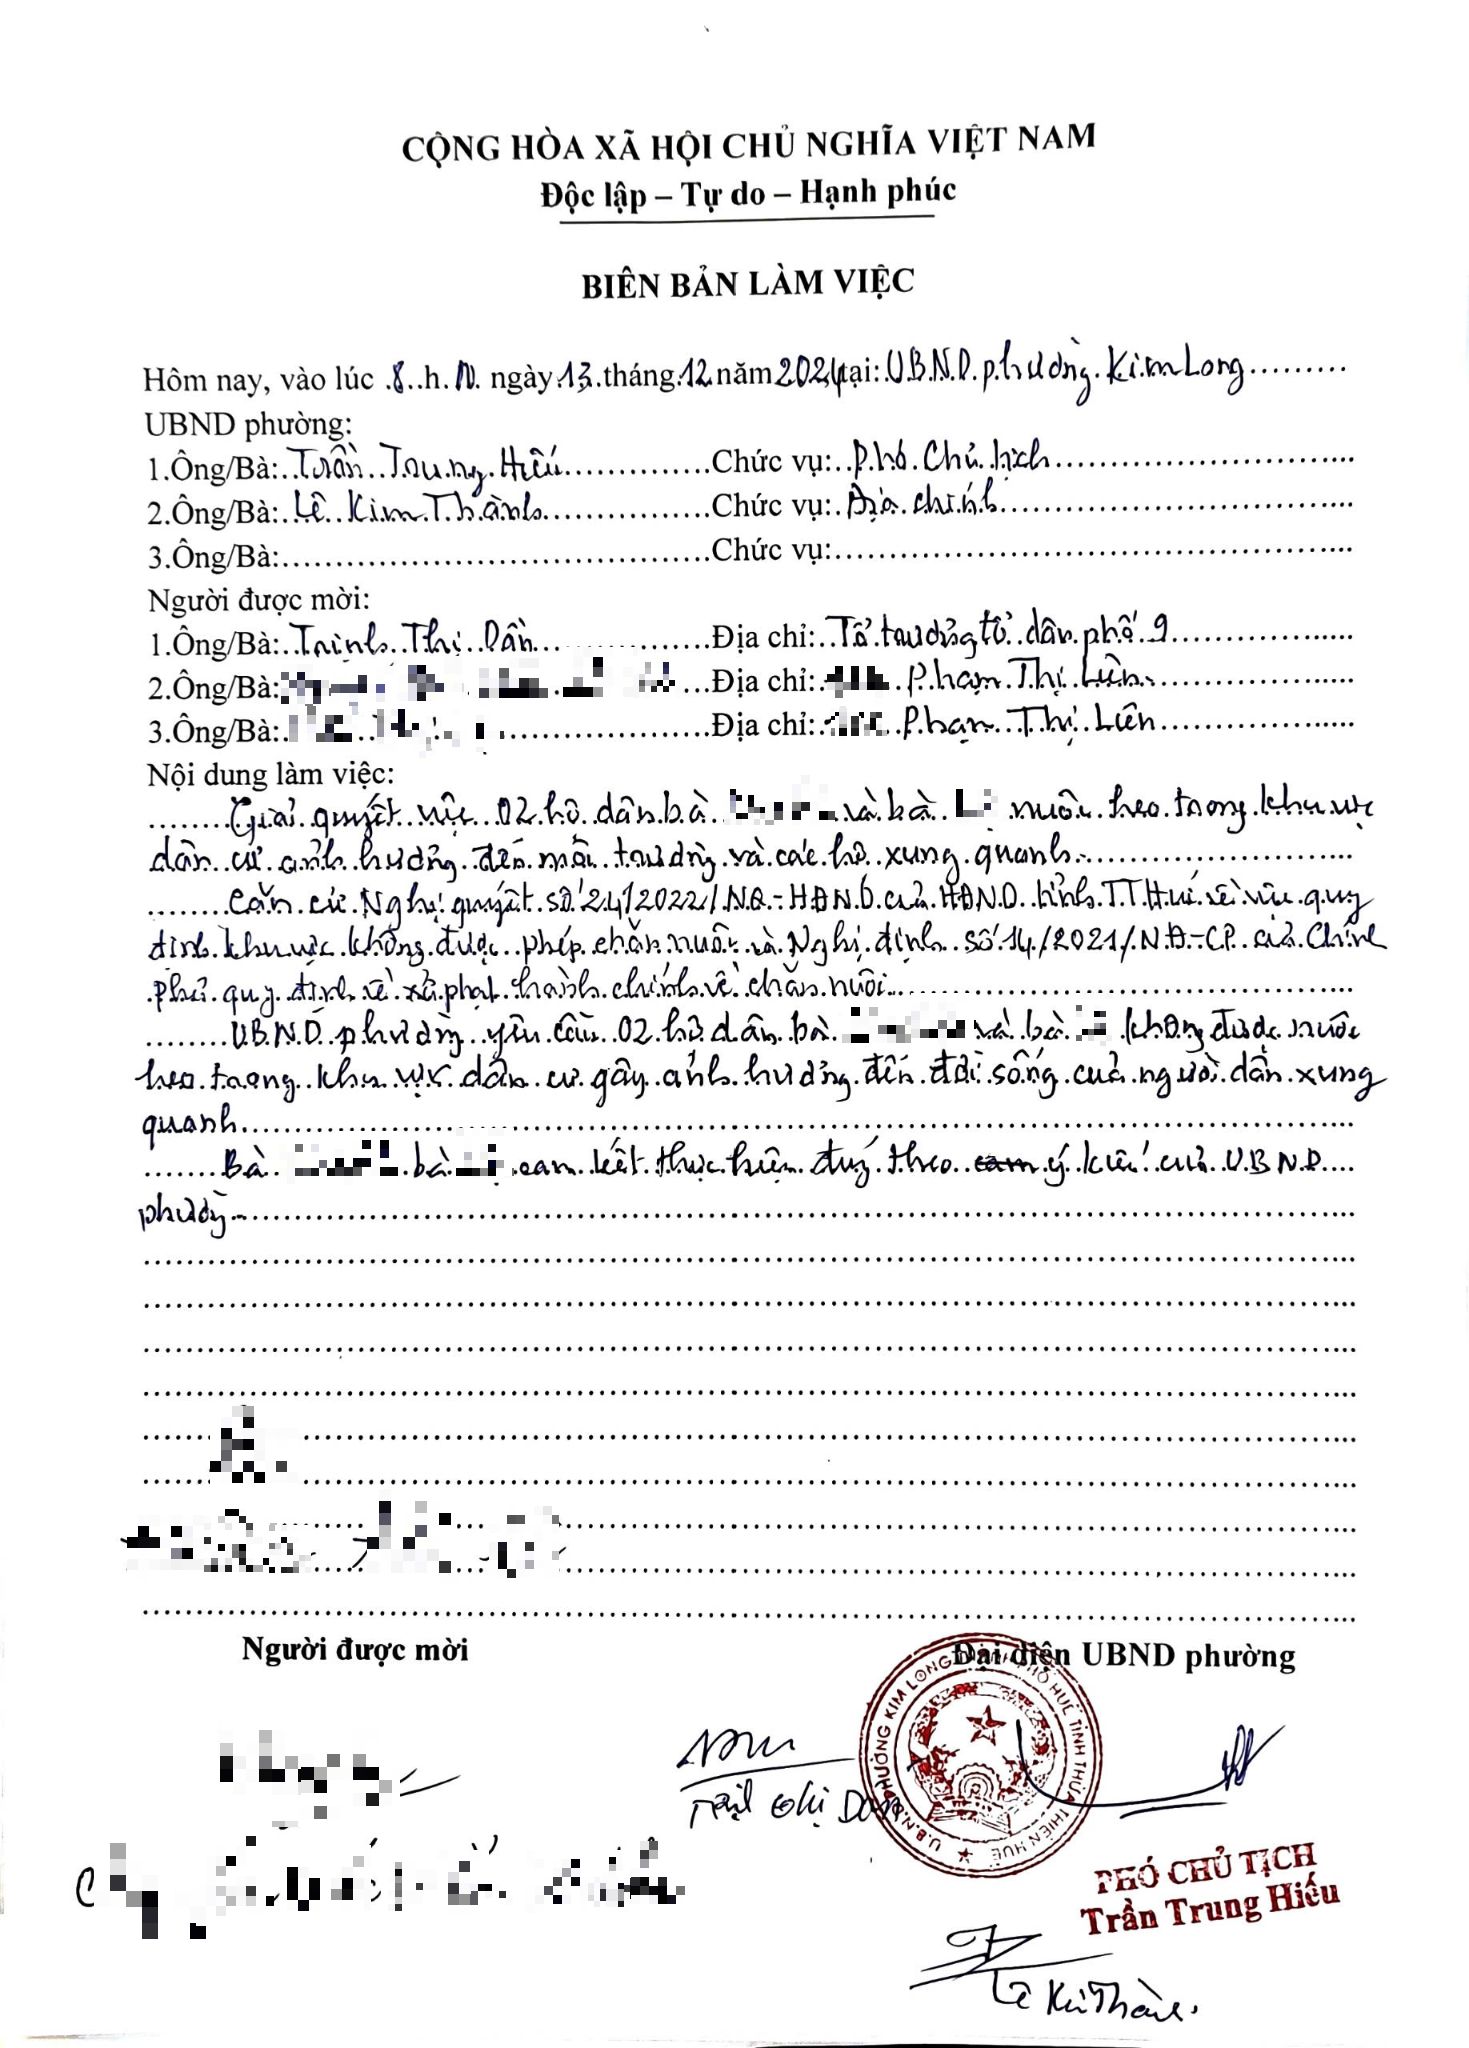 CỘNG HÒA XÃ HỘI CHỦ NGHĨA VIỆT NAM
Độc lập – Tự do – Hạnh phúc
BIÊN BẢN LÀM VIỆC
Hôm nay, vào lúc 8 h ngày 13 tháng 12 năm 2024 tại: U.B.N.D phường Kim Long
UBND phường:
1.Ông/Bà: Trần Trung Hiếu Chức vụ: Phó Chủ tịch
2.Ông/Bà: Lê Kim Thành Chức vụ: Địa chính
3.Ông/Bà: Chức vụ:
Người được mời:
1.Ông/Bà: Trịnh Thị Dần Địa chỉ: Tổ trưởng tổ dân phố 9
2.Ông/Bà: Địa chỉ: Phạm Thị Liên
3.Ông/Bà: Địa chỉ: Phạm Thị Liên
Nội dung làm việc:
Giải quyết việc 02 hộ dân bà và bà nuôi heo trong khu vực
dân cư ảnh hưởng đến môi trường và các hộ xung quanh.
Căn cứ Nghị quyết số 24/2022/NQ-HĐND của HĐND tỉnh TT Huế về việc quy
định khu vực không được phép chăn nuôi và Nghị định số 14/2021/NĐ-CP của Chính
phủ quy định về xử phạt hành chính về chăn nuôi.
U.B.N.D phường yêu cầu 02 hộ dân bà và bà không được nuôi
heo trong khu vực dân cư gây ảnh hưởng đến đời sống của người dân xung
quanh.
Bà bà cam kết thực hiện đúng theo ý kiến của U.B.N.D
phường.
Người được mời
Đại diện UBND phường
U.B.N.D PHƯỜNG KIM LONG THÀNH PHỐ HUẾ TỈNH THỪA THIÊN HUẾ
PHÓ CHỦ TỊCH
Trần Trung Hiếu
Lê Kim Thành